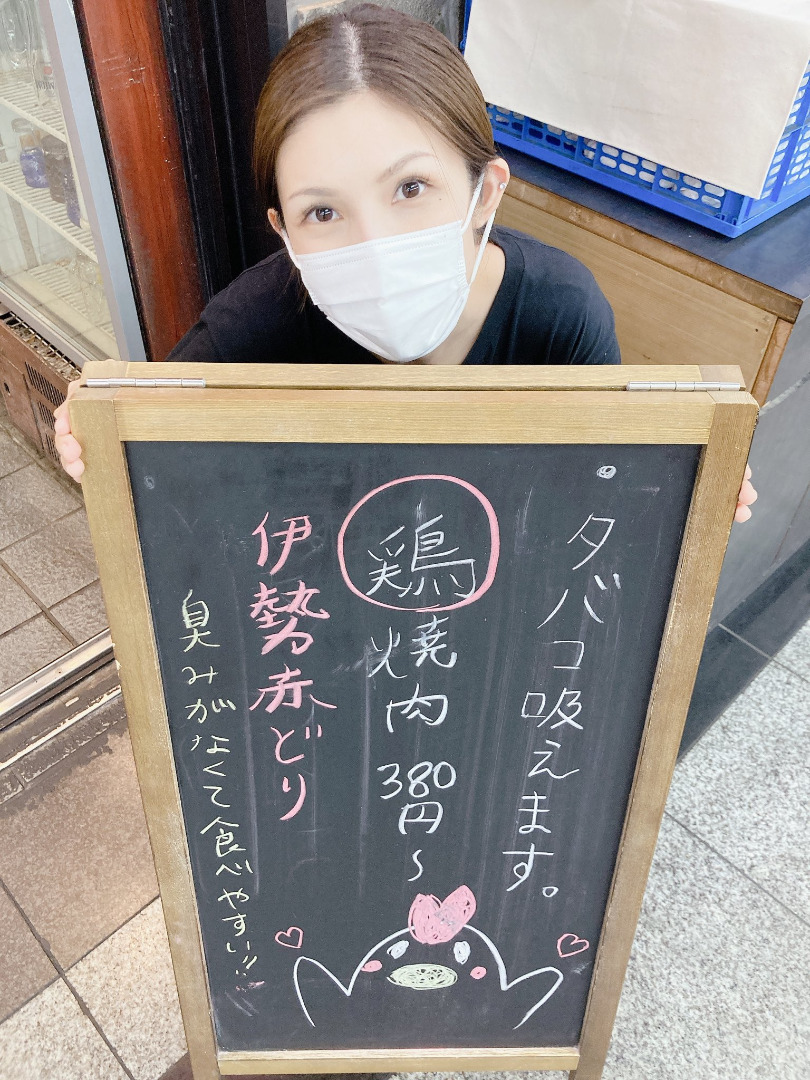 タバコ吸えます。
鶏焼肉 380円〜
伊勢赤どり
臭みがなくて食べやすい!!